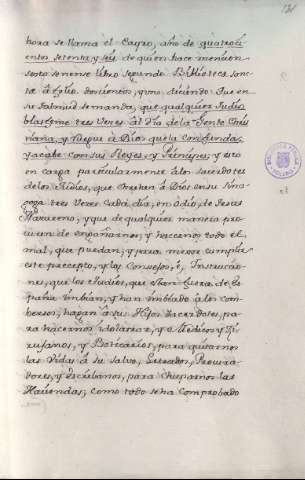 hora se llama el Cayro, año de quatroci
entos setenta, y seis, de quien hace mencion
sexto senense libro segundo Biblioteca sanc
ta á folio doscientos, y uno, diciendo: Que en
su Talmud se manda, que qualquier Judio
blasfeme tres veces al dia de la Gente Chris
tiana, y ruegue á Dios que la confunda,
y acabe con sus Reyes, y Principes, y esto
en carga particularmente á los sacerdotes
de los Judios, que oren á Dios en su Sina
goga tres veces cada dia, en odio de Jesus
Nazareno, y que de qualquier manera pro
curen de engañarnos, y hacernos todo el
mal, que puedan, y para mejor cumplir
este precepto, y los Consejos, è Instruccio
nes, que los Judios, que están fuera de Es
paña embian, y han embiado á los con
bersos, hagan á sus Hijos Sacerdotes, pa
ra hacernos idolatrar, y á Medicos y Zi
rujanos, y Boticarios, para quitarnos
las Vidas á su salvo, Letrados, Procura
dores, y Escribanos, para chuparnos las
Haciendas, como todo se ha comprobado